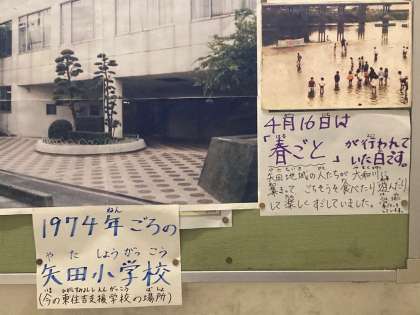 4月16日は
はる
「春ごと」が行われて
いた日です。
矢田地域の人たちが大和川に
集まって、ごちそうを食べたり遊んだり
して楽しくすごしていました。
ねん
1974年ごろの
や た しょうがっこう
矢田小学校
(今の東住吉支援学校の場所)